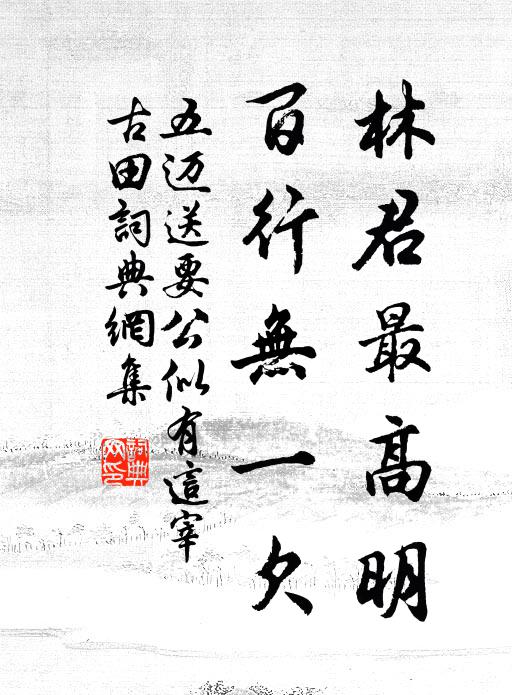 林君最高明
百行無一欠
五迈送要公似有這宰
古田詞典網集
詞典
网印